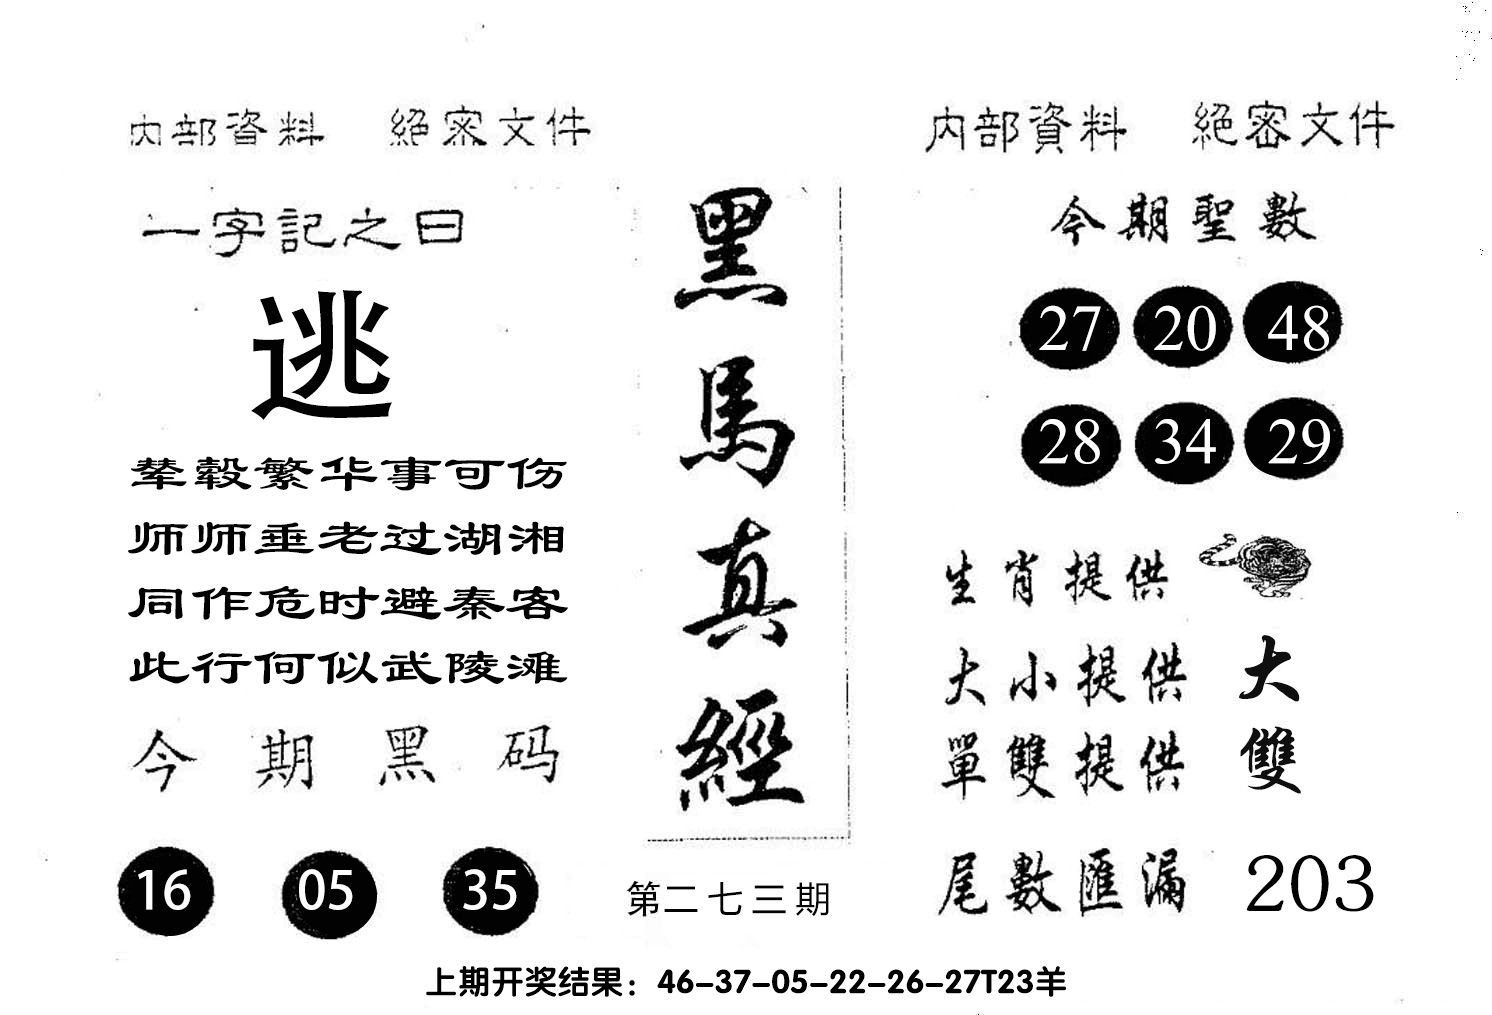 内部資料 絕密文件
一字記之曰
逃
辇毂繁华事可伤
师师垂老过湖湘
同作危时避秦客
此行何似武陵滩
今期黑码
16 05 35
黑馬真經
第二七三期
内部資料 絕密文件
今期聖數
27 20 48
28 34 29
生肖提供
大小提供 大
單雙提供 雙
尾數匯漏 203
上期开奖结果：46-37-05-22-26-27T23羊